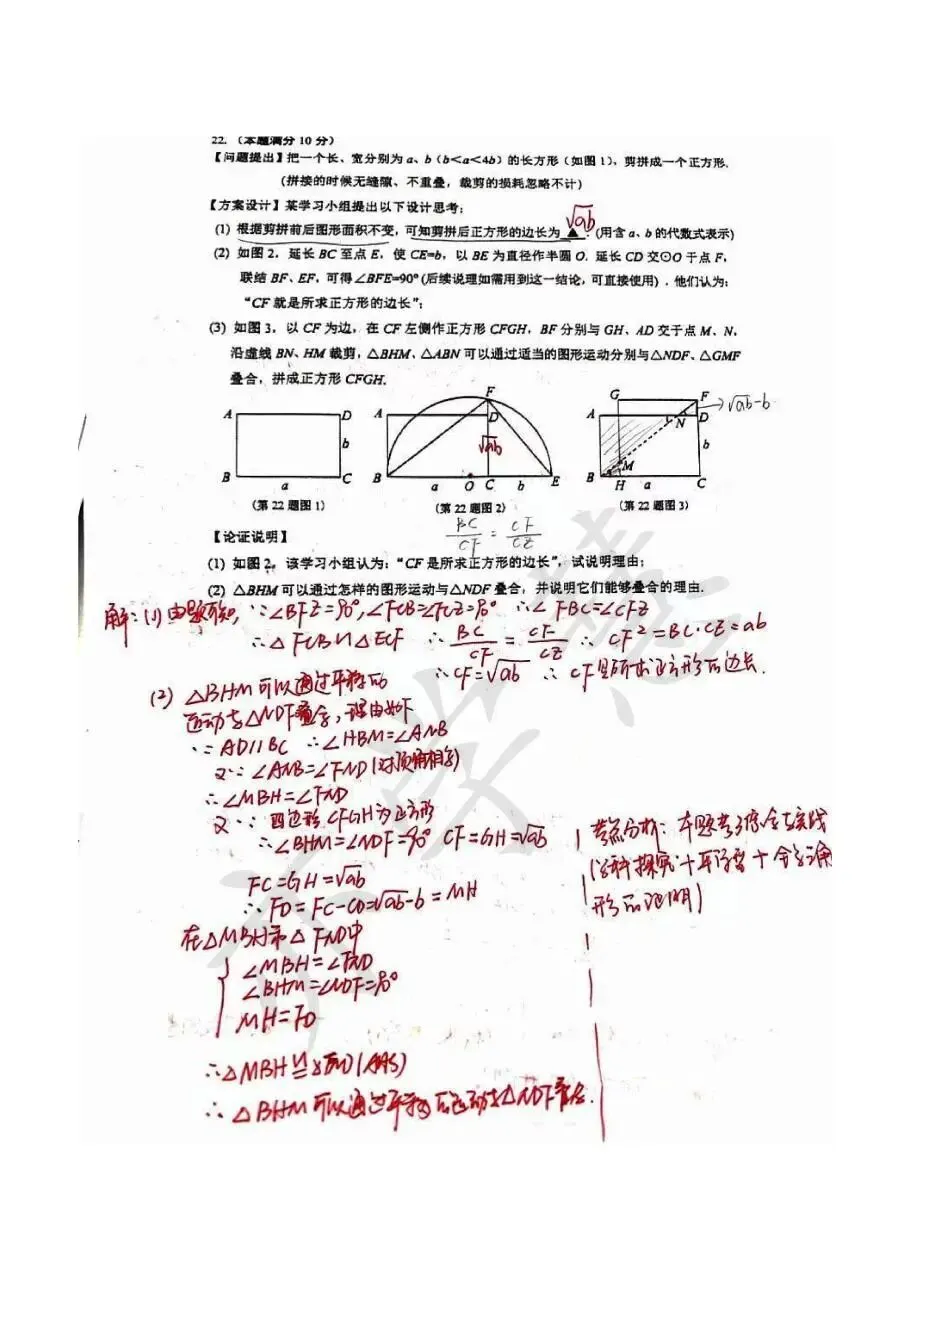 22. （本题满分 10 分）
【问题提出】把一个长、宽分别为 a、b（b＜a＜4b）的长方形（如图 1），剪拼成一个正方形.
（拼接的时候无缝隙、不重叠，裁剪的损耗忽略不计）
【方案设计】某学习小组提出以下设计思考：
√ab
(1) 根据剪拼前后图形面积不变，可知剪拼后正方形的边长为 ▲ . (用含 a、b 的代数式表示)
(2) 如图 2，延长 BC 至点 E，使 CE=b，以 BE 为直径作半圆 O. 延长 CD 交⊙O 于点 F，
联结 BF、EF，可得∠BFE=90° (后续说理如需用到这一结论，可直接使用) . 他们认为：
“CF 就是所求正方形的边长”；
(3) 如图 3，以 CF 为边，在 CF 左侧作正方形 CFGH，BF 分别与 GH、AD 交于点 M、N.
沿虚线 BN、HM 裁剪，△BHM、△ABN 可以通过适当的图形运动分别与△NDF、△GMF
叠合，拼成正方形 CFGH.
A D b B a C
F A D √ab B a O C b E
G F √ab-b A N D b M B H a C
（第 22 题图 1） （第 22 题图 2） （第 22 题图 3）
BC/CF = CF/CE
【论证说明】
(1) 如图 2，该学习小组认为：“CF 是所求正方形的边长”，试说明理由；
(2) △BHM 可以通过怎样的图形运动与△NDF 叠合，并说明它们能够叠合的理由.
解：(1) 由题可知，∵∠BFE=90°，∠FCB=∠FCE=90° ∴∠FBC=∠CFE
∴△FCB∽△ECF ∴ BC/CF = CF/CE ∴ CF²=BC·CE=ab
∴CF=√ab ∴ CF是所求正方形的边长.
(2) △BHM可以通过平移的
运动与△NDF叠合，理由如下
∵AD∥BC ∴∠HBM=∠ANB
又∵∠ANB=∠FND(对顶角相等)
∴∠MBH=∠FND
又∵四边形CFGH为正方形
∴∠BHM=∠NDF=90° CF=GH=√ab
FC=GH=√ab
∴FD=FC-CD=√ab-b=MH
在△MBH和△FND中
∠MBH=∠FND
∠BHM=∠NDF=90°
MH=FD
∴△MBH≌△FND(AAS)
∴△BHM可以通过平移的运动与△NDF叠合.
考点分析：本题考了综合与实践
形的证明)